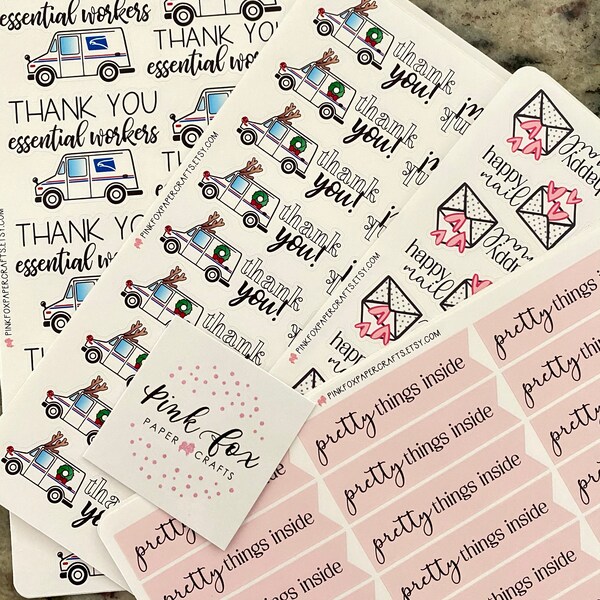 essential workers
THANK YOU
essential workers
THANK YOU
essential workers
THANK YOU
essential workers
THANK YOU
PINKFOXPAPERCRAFTS.ETSY.COM
thank
you!
thank
you!
thank
you!
thank
you!
thank
you!
thank
you!
PINKFOXPAPERCRAFTS.ETSY.COM
happy
mail
happy
mail
happy
mail
happy
PINKFOXPAPERCRAFTS.ETSY.COM
pink fox
PAPER CRAFTS
PINKFOXPAPERCRAFTS.ETSY.COM
pretty things inside
pretty things inside
pretty things inside
pretty things inside
pretty things inside
pretty things inside
pretty things inside